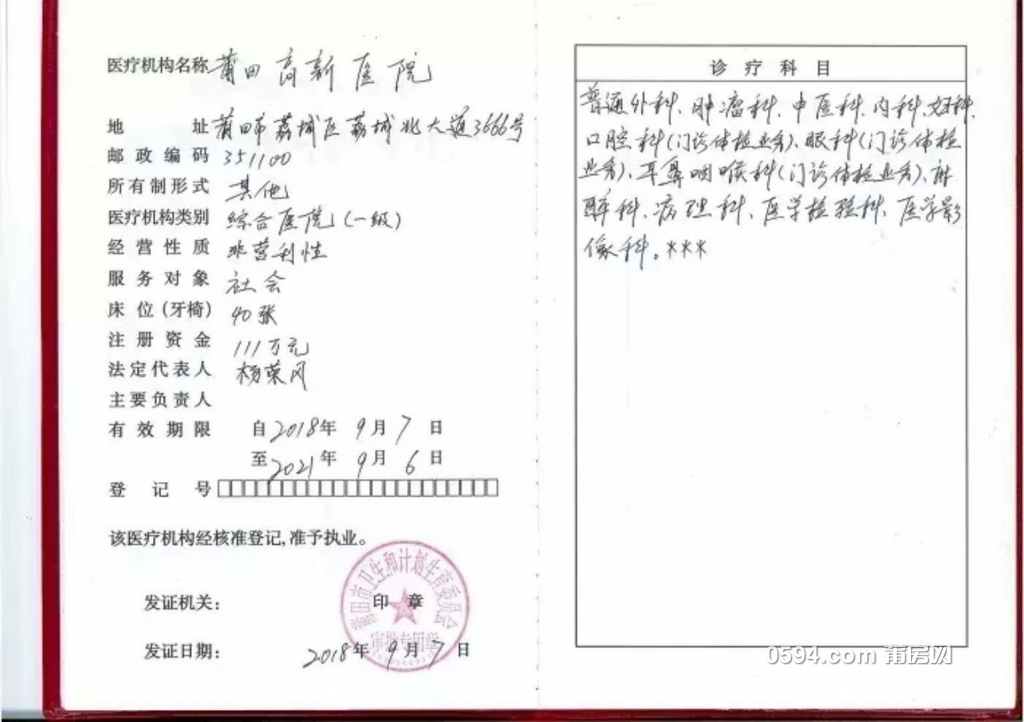 医疗机构名称 莆田高新医院
地 址 莆田市荔城区荔城北大道3666号
邮政编码 351100
所有制形式 其他
医疗机构类别 综合医院(一级)
经营性质 非营利性
服务对象 社会
床位(牙椅) 40张
注册资金 111万元
法定代表人 杨荣风
主要负责人
有效期限 自2018年9月7日
至2021年9月6日
登记号
该医疗机构经核准登记,准予执业。
发证机关: 印章
莆田市卫生和计划生育委员会
审批专用章
发证日期: 2018年9月7日
诊疗科目
普通外科、肿瘤科、中医科、内科、妇科、
口腔科(门诊体检业务)、眼科(门诊体检
业务)、耳鼻咽喉科(门诊体检业务)、麻
醉科、病理科、医学检验科、医学影
像科。***
0594.com 莆房网